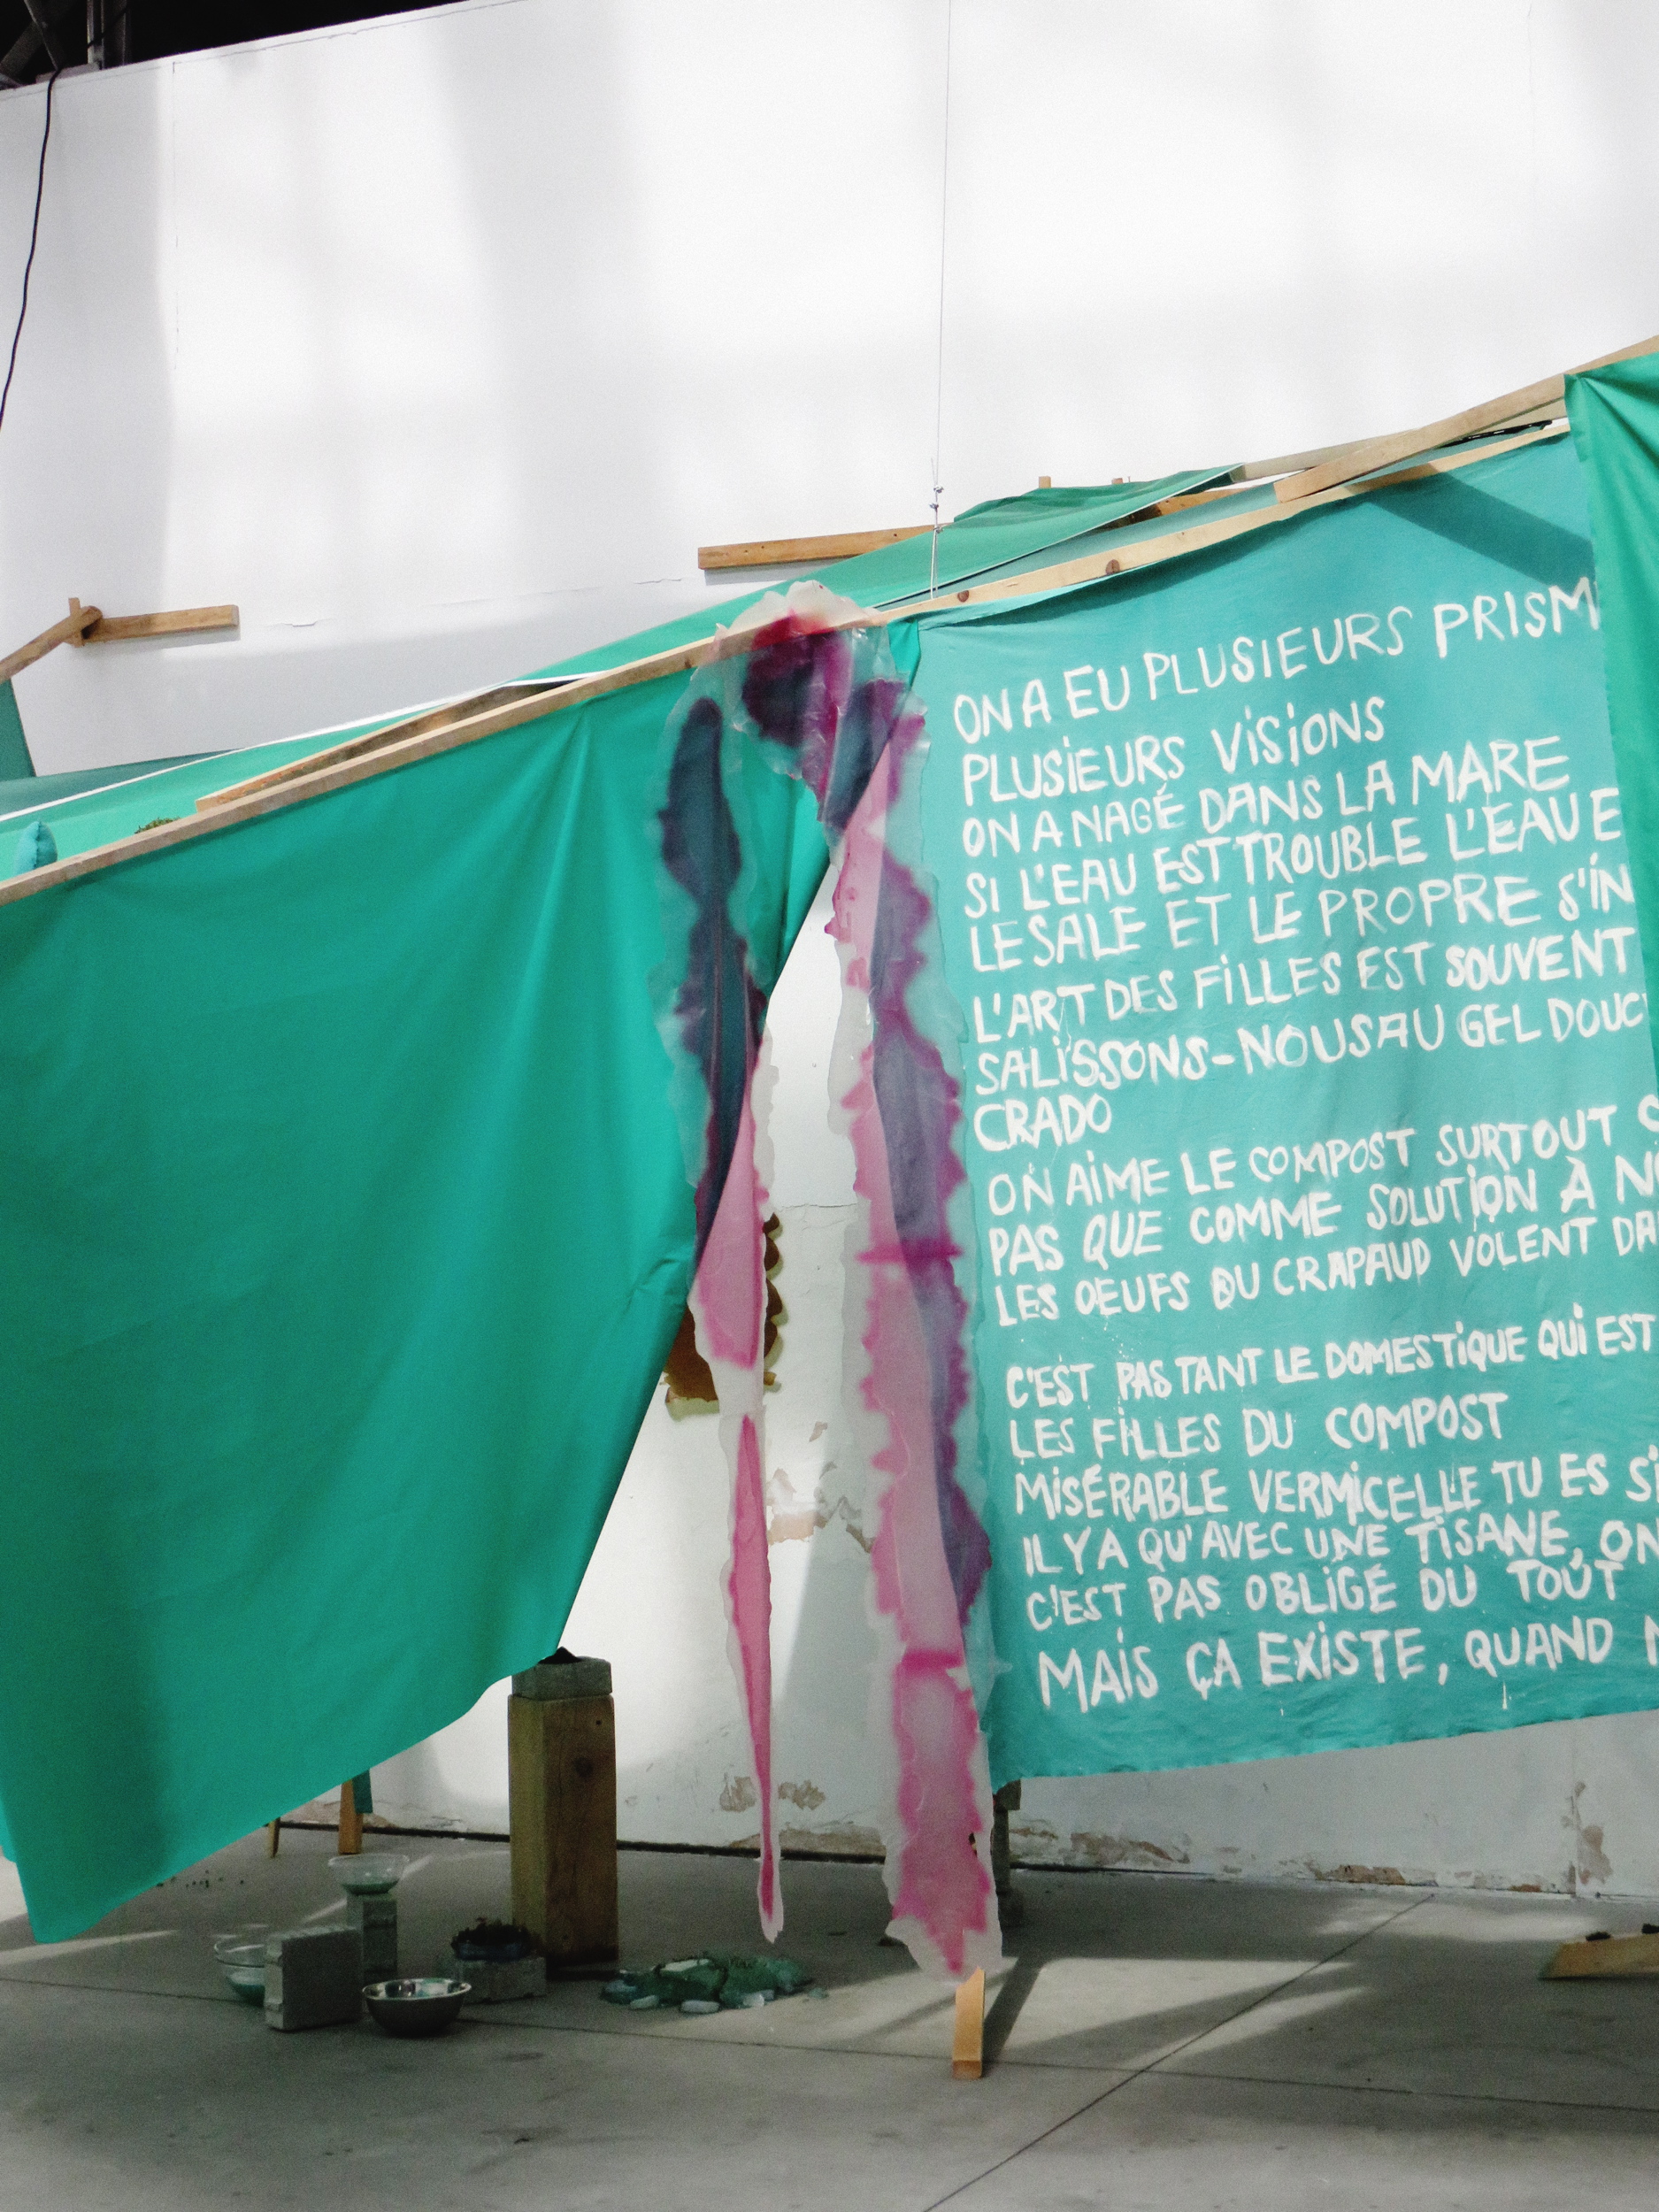 ON A EU PLUSIEURS PRISM
PLUSIEURS VISIONS
ON A NAGÉ DANS LA MARE
SI L'EAU EST TROUBLE L'EAU E
LE SALE ET LE PROPRE S'IN
L'ART DES FILLES EST SOUVENT
SALISSONS-NOUS AU GEL DOUC
CRADO
ON AIME LE COMPOST SURTOUT
PAS QUE COMME SOLUTION À N
LES OEUFS DU CRAPAUD VOLENT DA
C'EST PAS TANT LE DOMESTIQUE QUI EST
LES FILLES DU COMPOST
MISÉRABLE VERMICELLE TU ES S'I
IL Y A QU'AVEC UNE TISANE, ON
C'EST PAS OBLIGÉ DU TOUT
MAIS ÇA EXISTE, QUAND